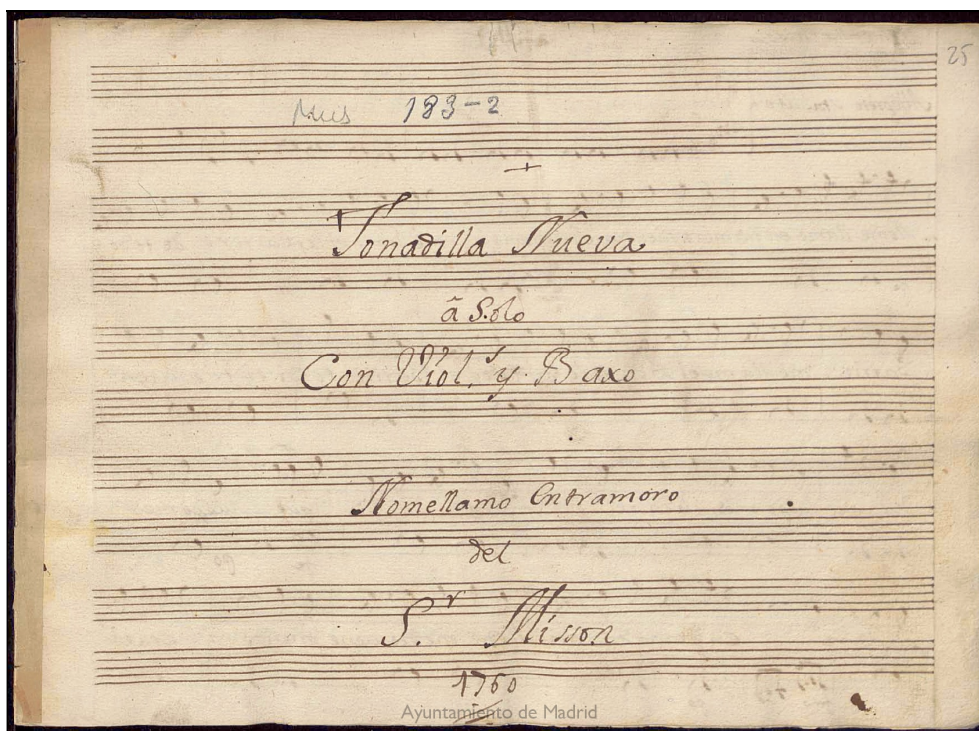 25
Mus 183-2
Tonadilla Nueva
â Solo
Con Viol.s y Baxo
Nomellamo Entramoro
del
S.r Misson
1760
Ayuntamiento de Madrid